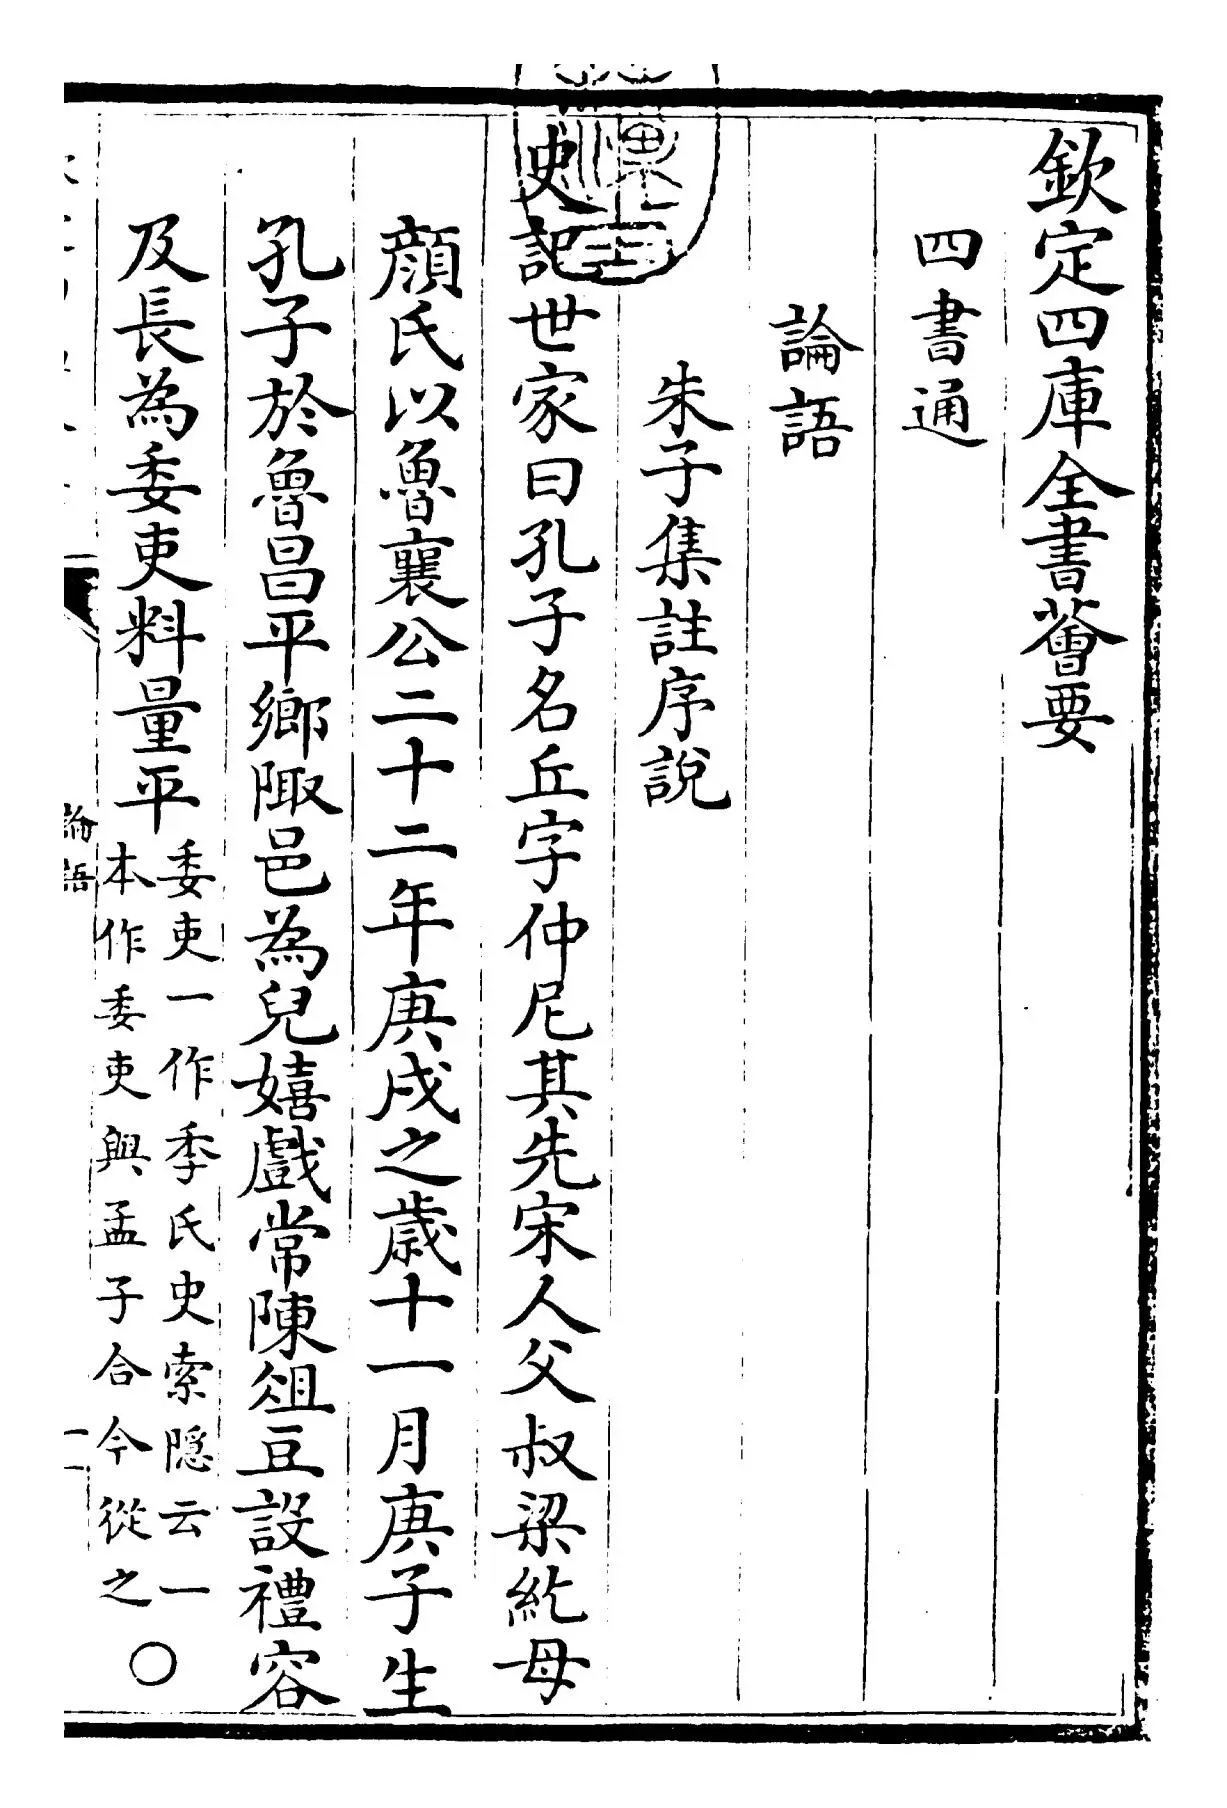 欽定四庫全書薈要
四書通
論語
朱子集註序説
史記世家曰孔子名丘字仲尼其先宋人父叔梁紇母
顔氏以魯襄公二十二年庚戌之歳十一月庚子生
孔子於魯昌平鄉陬邑為兒嬉戲常陳俎豆設禮容
及長為委吏料量平
委吏一作季氏史索隱云一
本作委吏與孟子合今從之○
論語
一